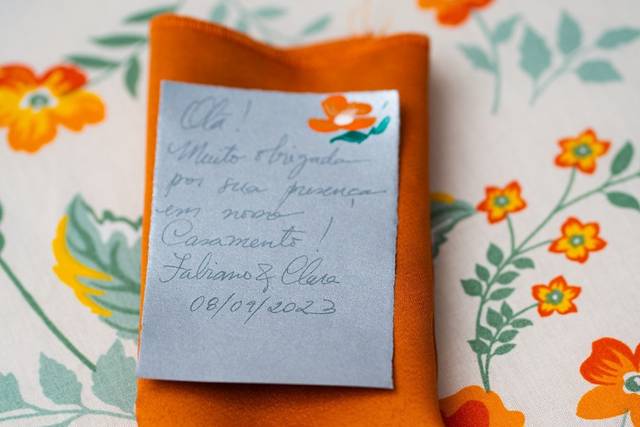 Olá!
Muito obrigada
por sua presença
em nosso
Casamento!
Fabiano & Clara
08/09/2023